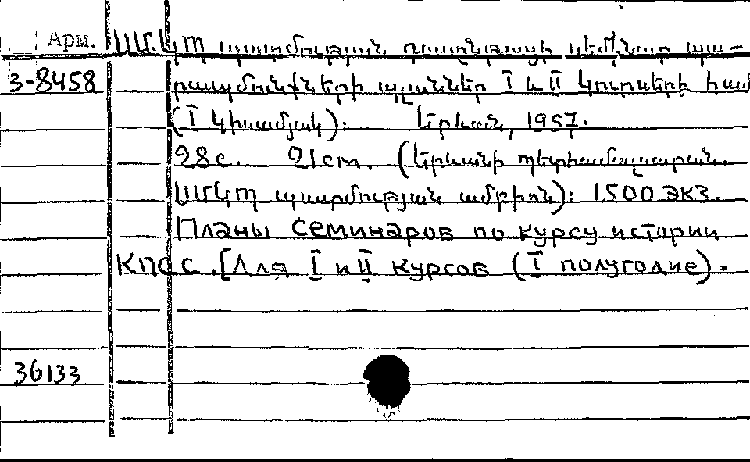 Арм. ՍՄԿՊ պատմության դասընթացի սեմինար պա-
3-8458 րապմունքների պլաններ I և II կուրսերի համ
(I կիսամյակ): Երևան, 1957.
28с. 21cm. (Երևանի պետհամալսարան.
ՍՄԿՊ պատմության ամբիոն): 1500 экз.
Планы семинаров по курсу истории
КПСС. [Для I и II курсов (I полугодие).
36133